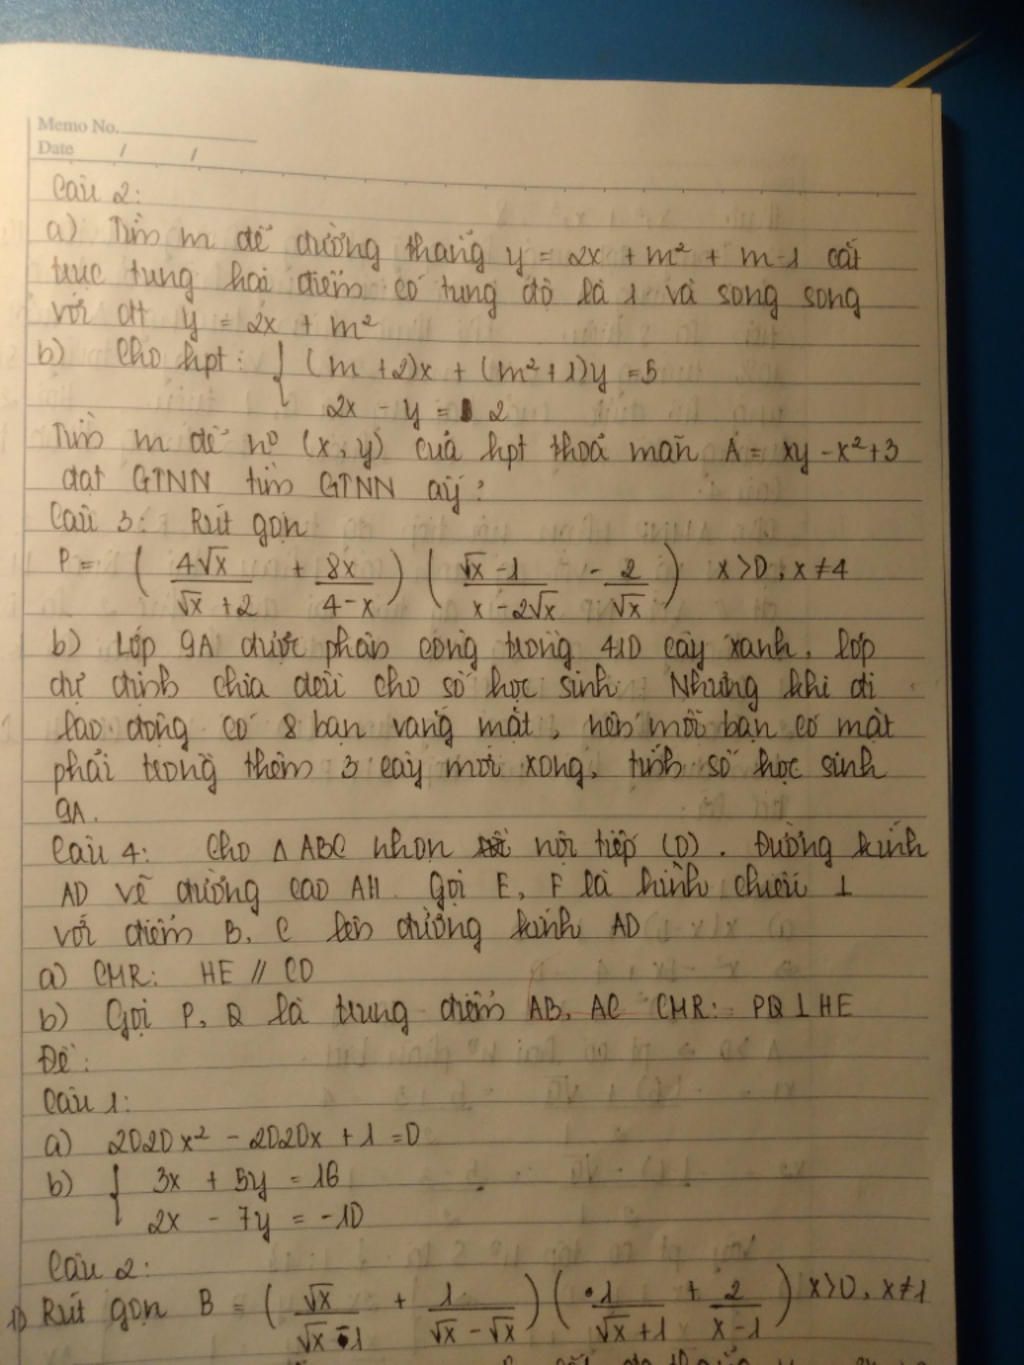 Memo No.
Date / /
Câu 2:
a) Tìm m để đường thẳng y = 2x + m² + m-1 cắt
trục tung hai điểm có tung độ là 1 và song song
với đt y = 2x + m²
b) Cho hpt: { (m+2)x + (m²+1)y = 5
2x - y = 2
Tìm m để n⁰ (x, y) của hpt thoả mãn A = xy - x² + 3
đạt GTNN tìm GTNN ấy?
Câu 3: Rút gọn
P = (4√x / (√x + 2) + 8x / (4 - x)) ((√x - 1) / (x - 2√x) - 2 / √x) x>0, x≠4
b) Lớp 9A được phân công trồng 410 cây xanh. Lớp
dự định chia đều cho số học sinh Nhưng khi đi
lao động có 8 bạn vắng mặt, nên mỗi bạn có mặt
phải trồng thêm 3 cây mới xong, tính số học sinh
9A.
Câu 4: Cho △ABC nhọn nội tiếp (O). Đường kính
AD vẽ đường cao AH. Gọi E, F là hình chiếu ⊥
với điểm B, C lên đường kính AD
a) CMR: HE // CD
b) Gọi P, Q là trung điểm AB, AC CMR: PQ ⊥ HE
Đề:
Câu 1:
a) 2020x² - 2020x + 1 = 0
b) { 3x + 5y = 16
2x - 7y = -10
Câu 2:
1) Rút gọn B = (√x / (√x - 1) + 1 / (√x - √x)) (1 / (√x + 1) + 2 / (x - 1)) x>0, x≠1